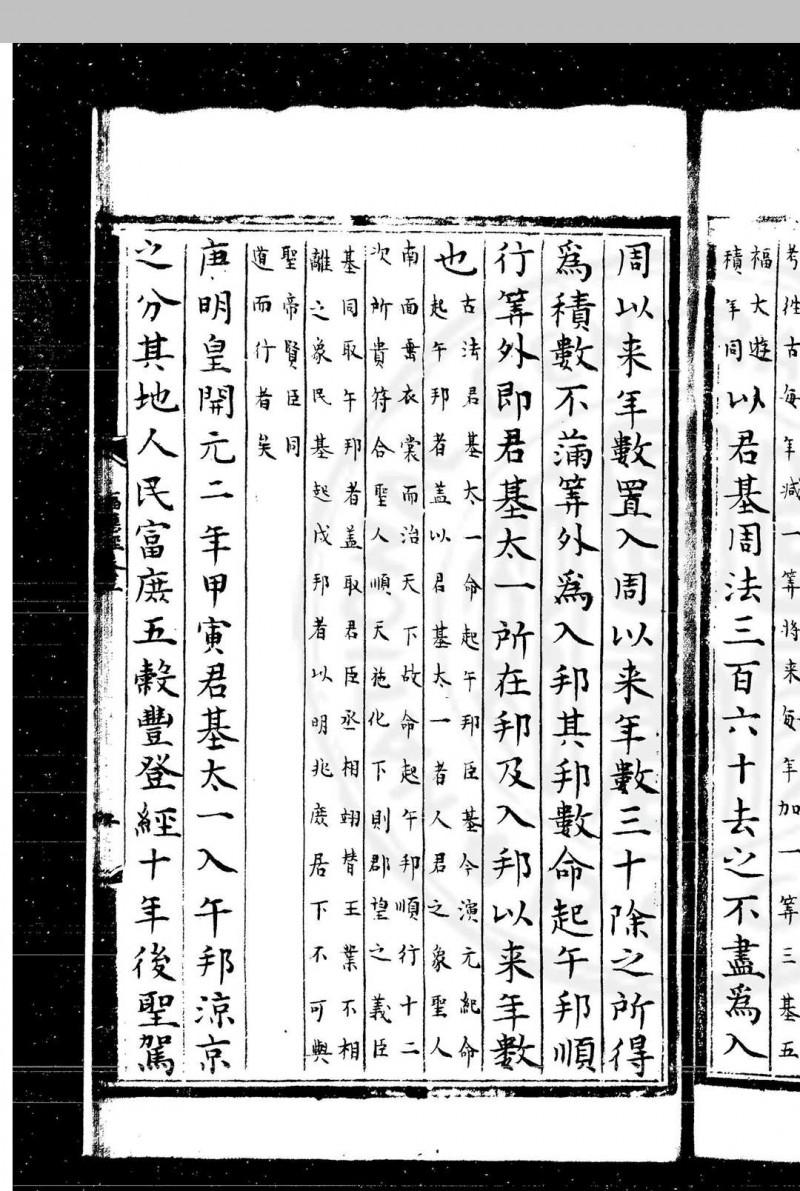 考往古每年減一筭將来每年加一筭三基五
福大遊
積年同以君基周法三百六十去之不盡為入
周以来年數置入周以来年數三十除之所得
為積數不滿筭外為入邦其邦數命起午邦順
行筭外即君基太一所在邦及入邦以来年數
也古法君基太一命起午邦臣基今演元紀命
起午邦者盖以君基太一者人君之象聖人
南面垂衣裳而治天下故命起午邦順行十二
次所貴符合聖人順天施化下則郡望之義臣
基同取午邦者盖取君臣丞相翊替王業不相
離之象民基起戌邦者以明兆庻居下不可與
聖帝賢臣同
道而行者矣
唐明皇開元二年甲寅君基太一入午邦涼京
之分其地人民富庻五穀豐登經十年後聖駕